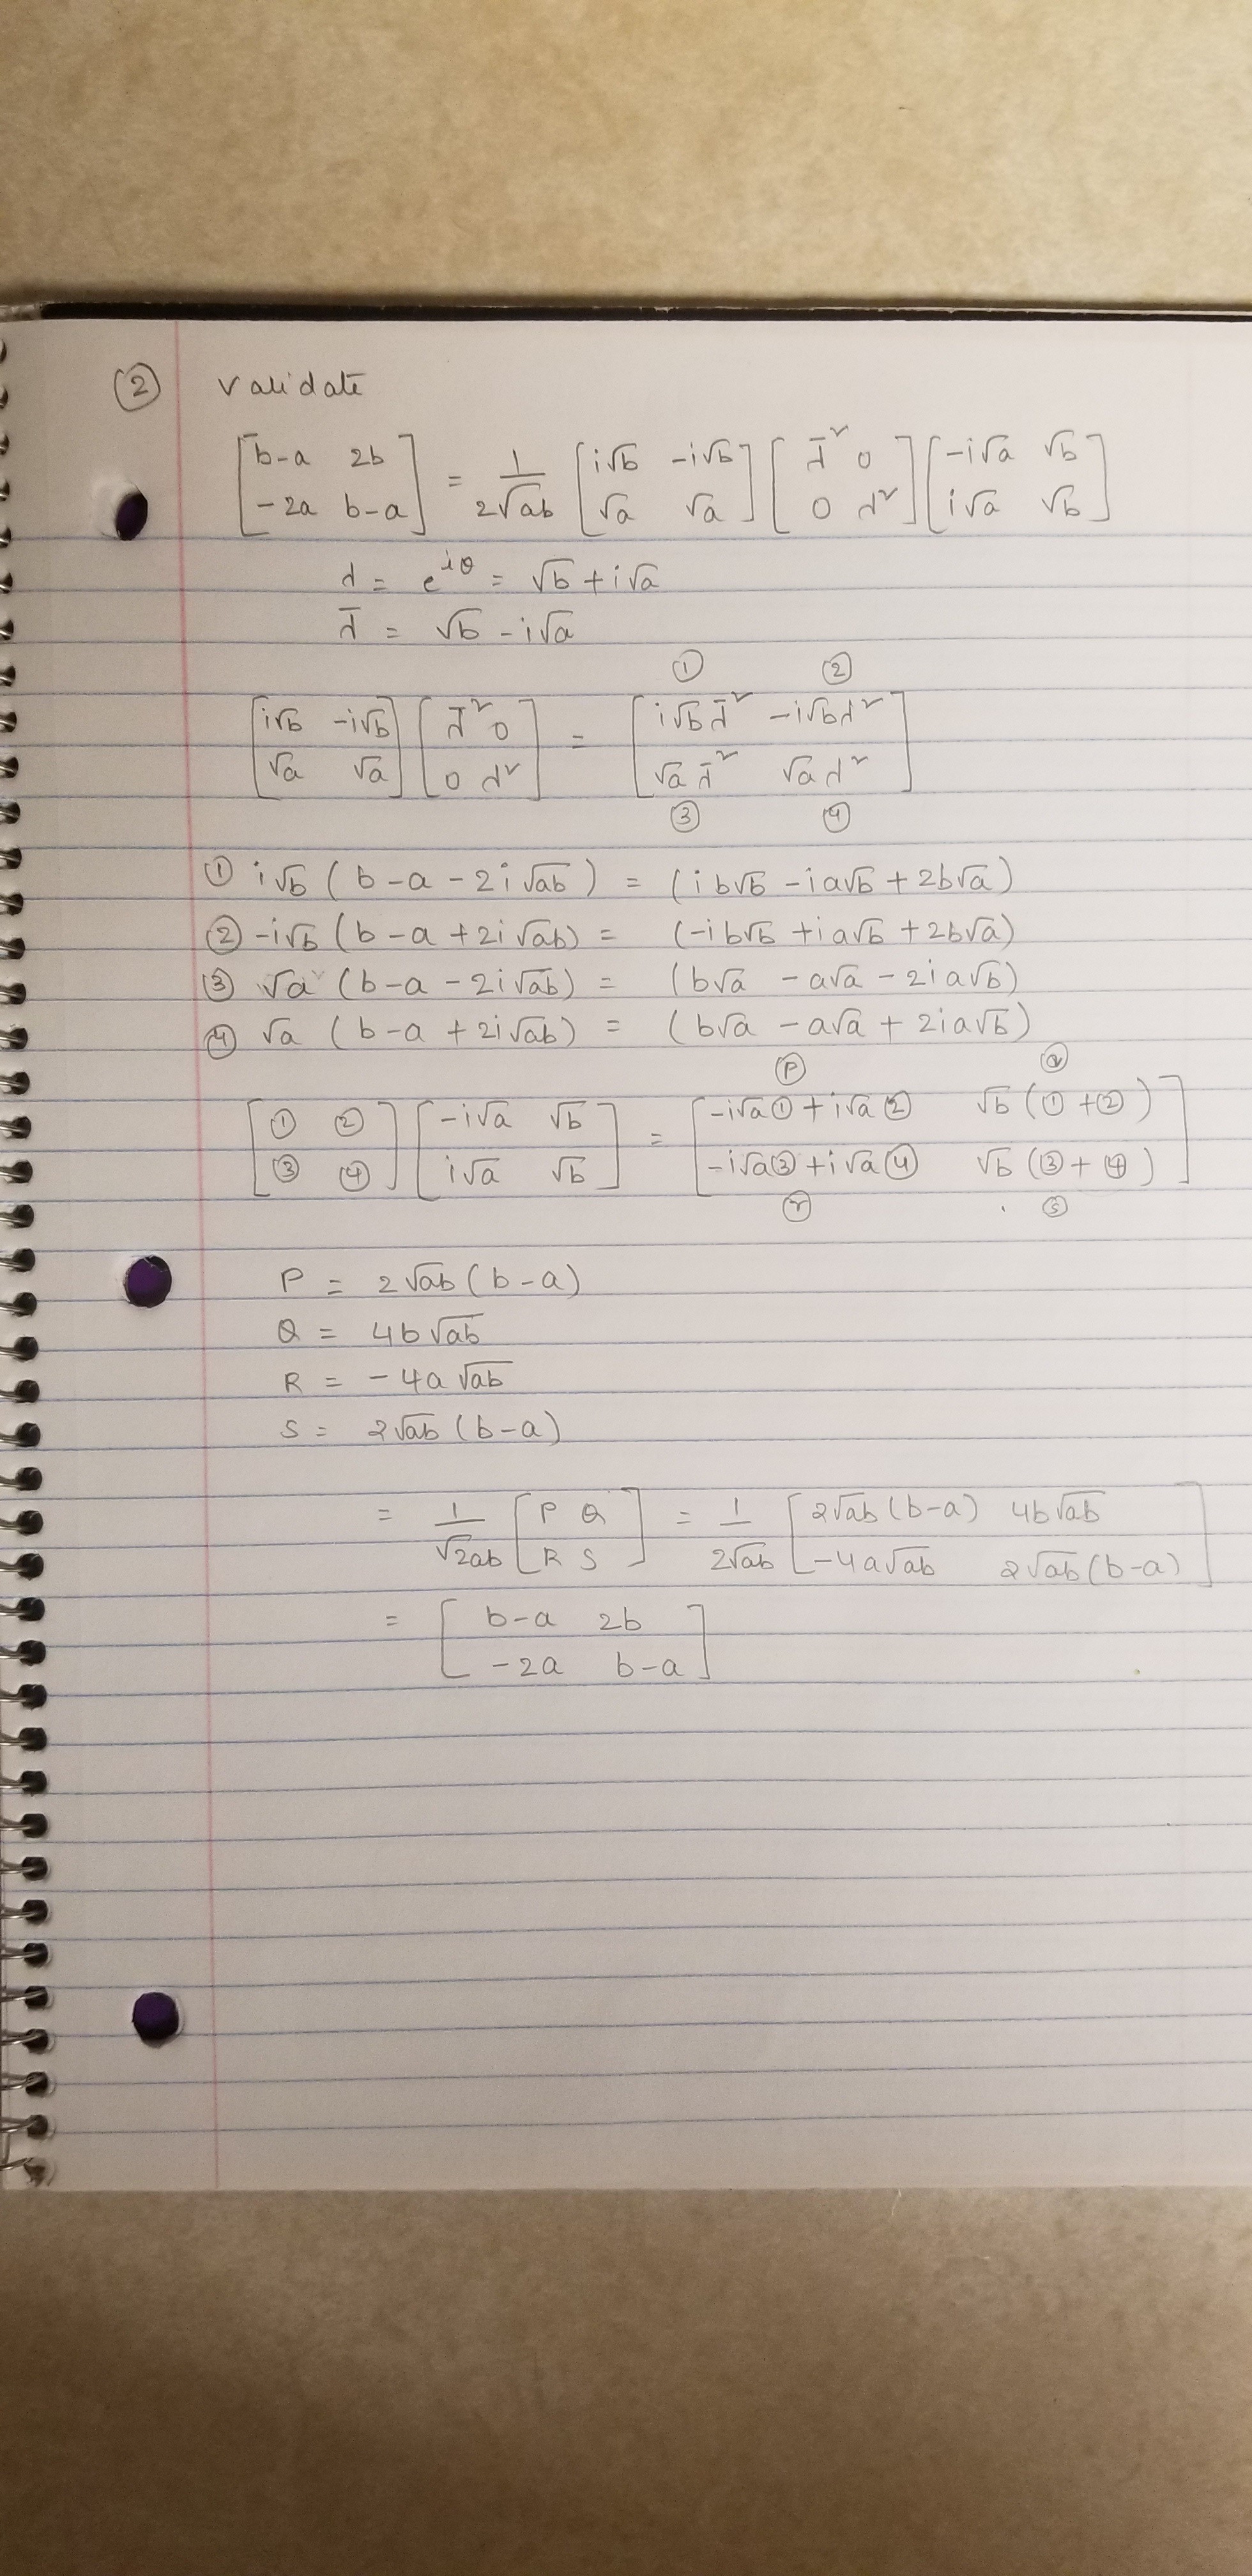 ② validate
[b-a 2b; -2a b-a] = 1/(2√ab) [i√b -i√b; √a √a] [λ̄² 0; 0 λ²] [-i√a √b; i√a √b]
λ = e^iθ = √b + i√a
λ̄ = √b - i√a
① ②
[i√b -i√b; √a √a] [λ̄² 0; 0 λ²] = [i√b λ̄² -i√b λ²; √a λ̄² √a λ²]
③ ④
① i√b (b-a-2i√ab) = (ib√b - ia√b + 2b√a)
② -i√b (b-a+2i√ab) = (-ib√b + ia√b + 2b√a)
③ √a (b-a-2i√ab) = (b√a - a√a - 2ia√b)
④ √a (b-a+2i√ab) = (b√a - a√a + 2ia√b)
Ⓟ Ⓠ
[① ②; ③ ④] [-i√a √b; i√a √b] = [-i√a① + i√a② √b(①+②); -i√a③ + i√a④ √b(③+④)]
ⓡ ⓢ
P = 2√ab (b-a)
Q = 4b√ab
R = -4a√ab
S = 2√ab (b-a)
= 1/(√2ab) [P Q; R S] = 1/(2√ab) [2√ab(b-a) 4b√ab; -4a√ab 2√ab(b-a)]
= [b-a 2b; -2a b-a]